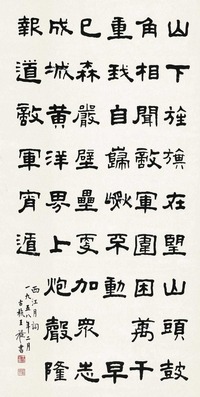 山下旌旗在望山頭鼓
角相聞敵軍圍困萬千
重我自巋然不動早
已森嚴壁壘更加衆志
成城黃洋界上炮聲隆
報道敵軍宵遁
西江月詞
一九五八年二月
王 書